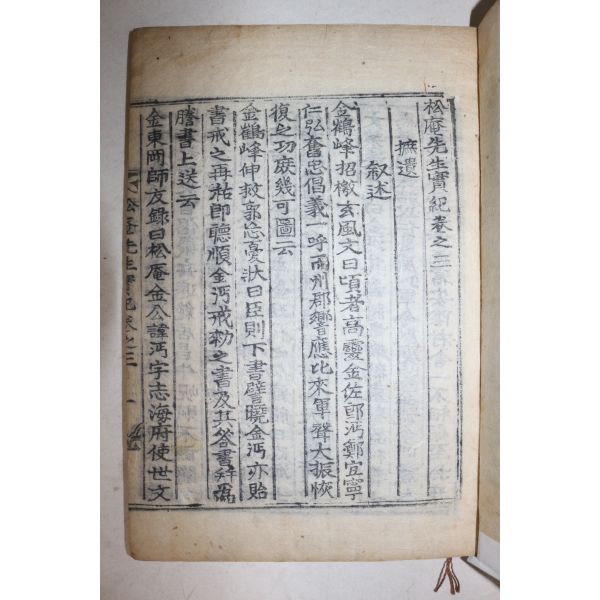 松庵先生實紀卷之三
摭遺
叙述
金鶴峰招檄玄風文曰頃者高靈金佐郎沔鄭宜寧
仁弘奮忠倡義一呼而州郡響應比來軍聲大振恢
復之功庶幾可圖云
金鶴峰伸救郭忘憂狀曰臣則下書譬曉金沔亦貽
書戒之再祐卽聽順金沔戒勅之書及其答書幷爲
謄書上送云
金東岡師友錄曰松庵金公諱沔字志海府使世文
松庵先生實紀卷之三 一